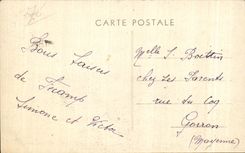 CARTE POSTALE
Bons Baisers
de Fécamp
Simone et Victor
Melle S.
chez Ses Parents
rue du Coq
Gorron
(Mayenne)